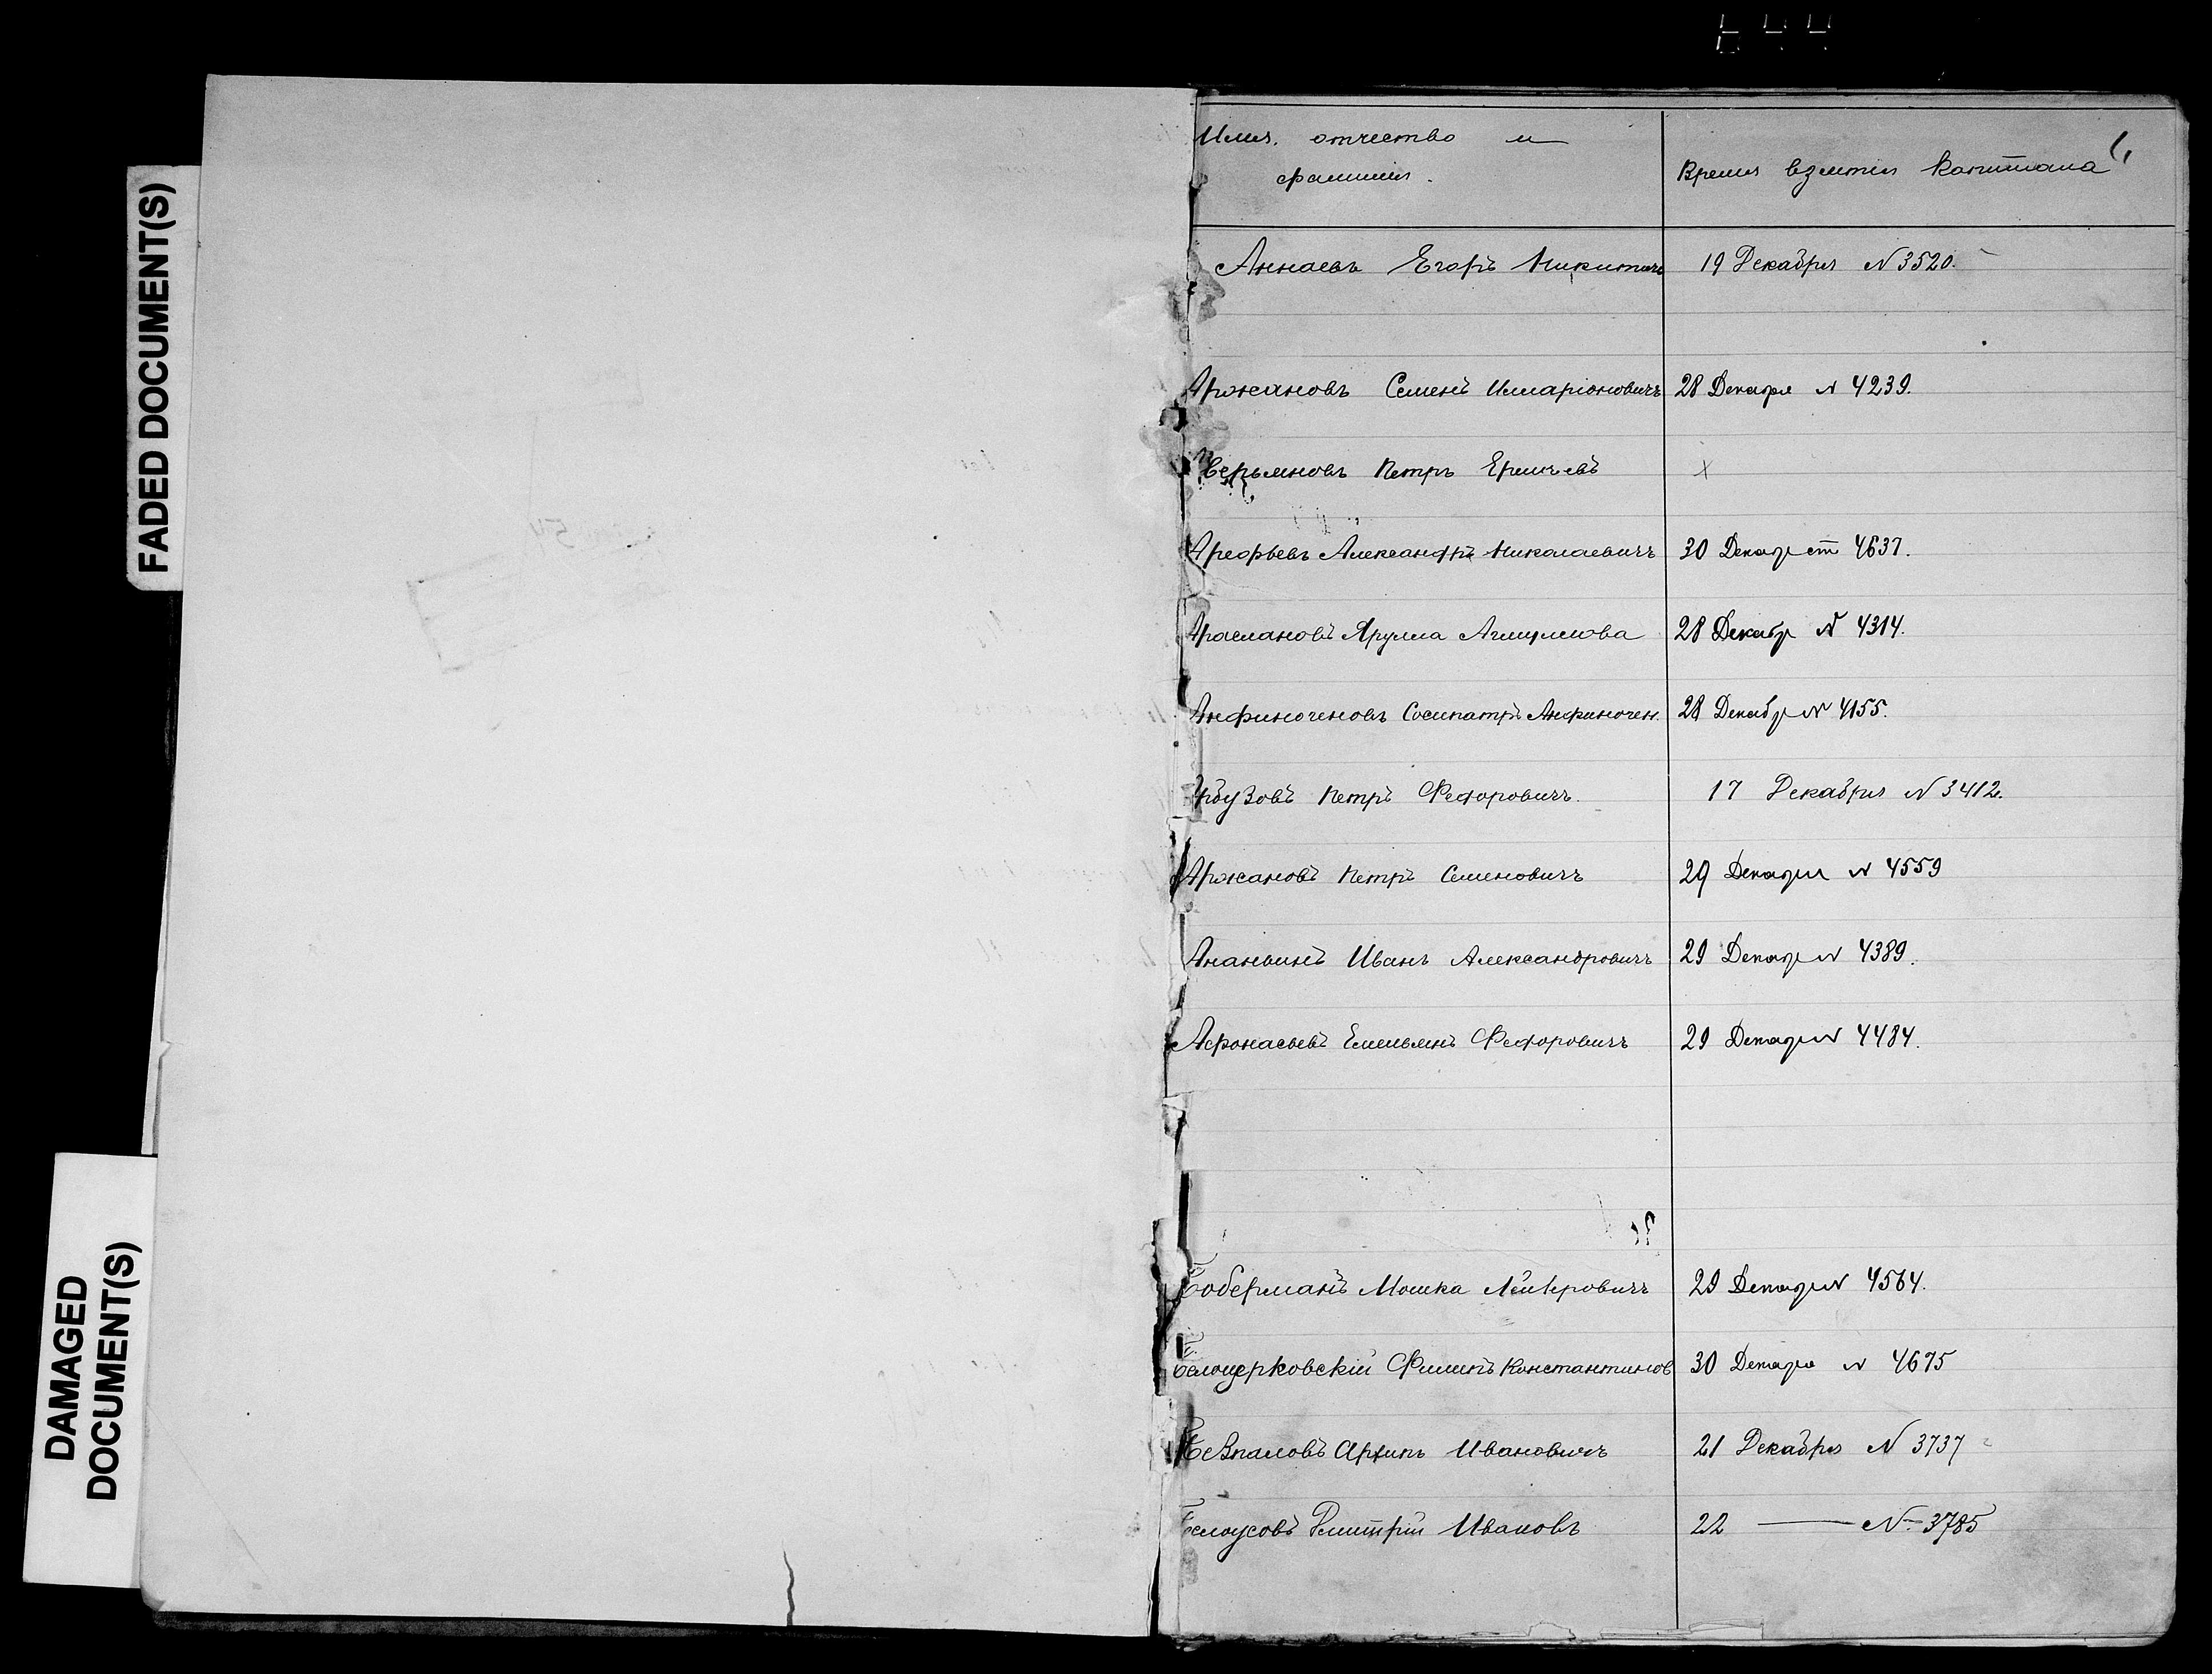 FADED DOCUMENT(S)
DAMAGED
DOCUMENT(S)
Имя, отчество и
фамилия.
Время взятия капитала
Аннаевъ Егоръ Никитичъ 19 Декабря N 3520.
Аржановъ Семенъ Илларіоновичъ 28 Декабря N 4239.
Аверьяновъ Петръ х
Арефьевъ Александръ Николаевичъ 30 Декабр 4637.
Арослановъ 28 Декабр N 4314.
Анфиногеновъ Сосипатръ Анфиноген. 28 Декабр N 4155.
Арбузовъ Петръ Федоровичъ. 17 Декабря N 3412.
Аржановъ Петръ Семеновичъ 29 Декабря N 4559
Ананьинъ Иванъ Александровичъ 29 Декабр N 4389.
Афонасьевъ Емельянъ Федоровичъ 29 Декабр N 4484.
Боберманъ Мошка 29 Декабр N 4564.
Белоцерковскій Филипъ Константинов 30 Декабря N 4675
Безпаловъ Архипъ Ивановичъ 21 Декабря N 3737
Белоусовъ Дмитрій Ивановъ 22 — N 3785